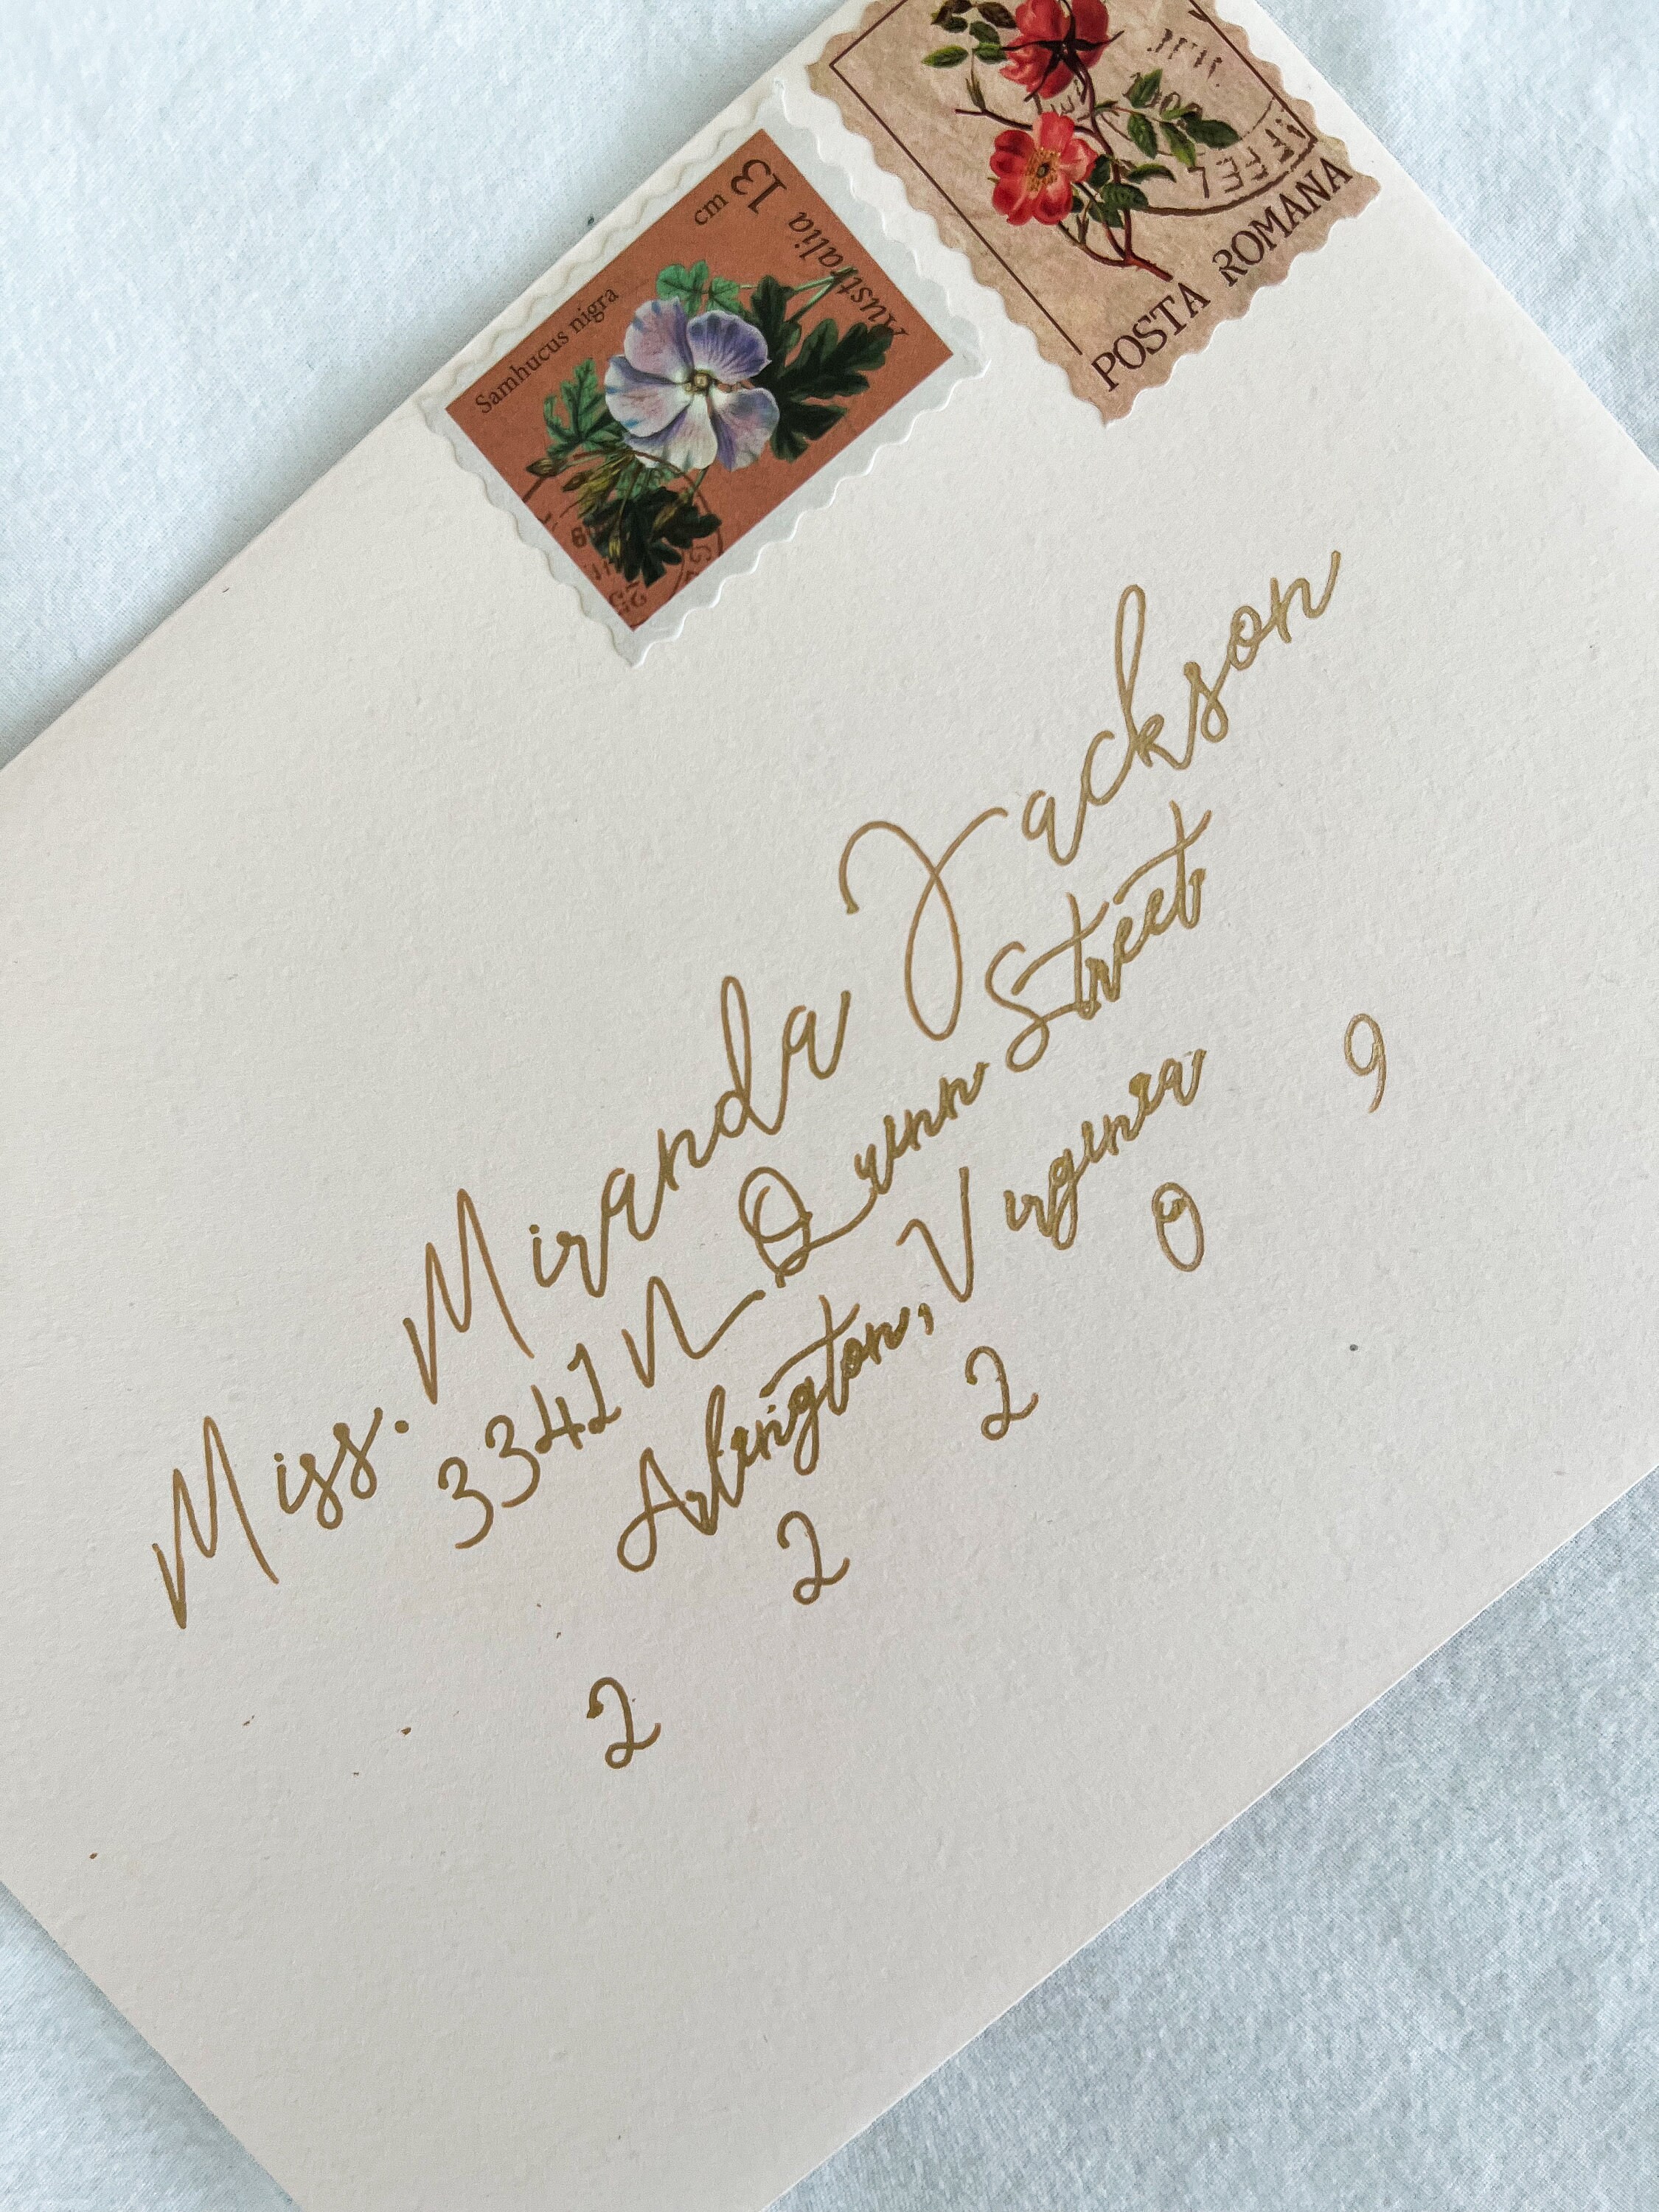 Samhucus nigra
cm
13
Australia
POSTA ROMANA
Miss. Miranda Jackson
3342 N Quinn Street
Arlington, Virginia
2 2 2 0 9